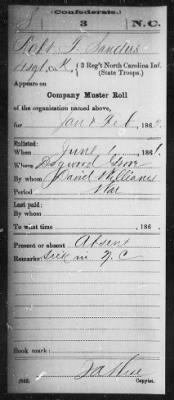 (Confederate.)
S 3 N.C.
Robt F. Sanders
, Co. K, 3 Reg't North Carolina Inf.
(State Troops.)
Appears on
Company Muster Roll
of the organization named above,
for Jan & Feb, 186
Enlisted:
When June 1, 1861.
Where Dogwood Grove
By whom David Williams
Period War
Last paid:
By whom
To what time , 186 .
Present or absent Absent
Remarks: Sick in N.C.
Book mark:
(642)
Copyist.